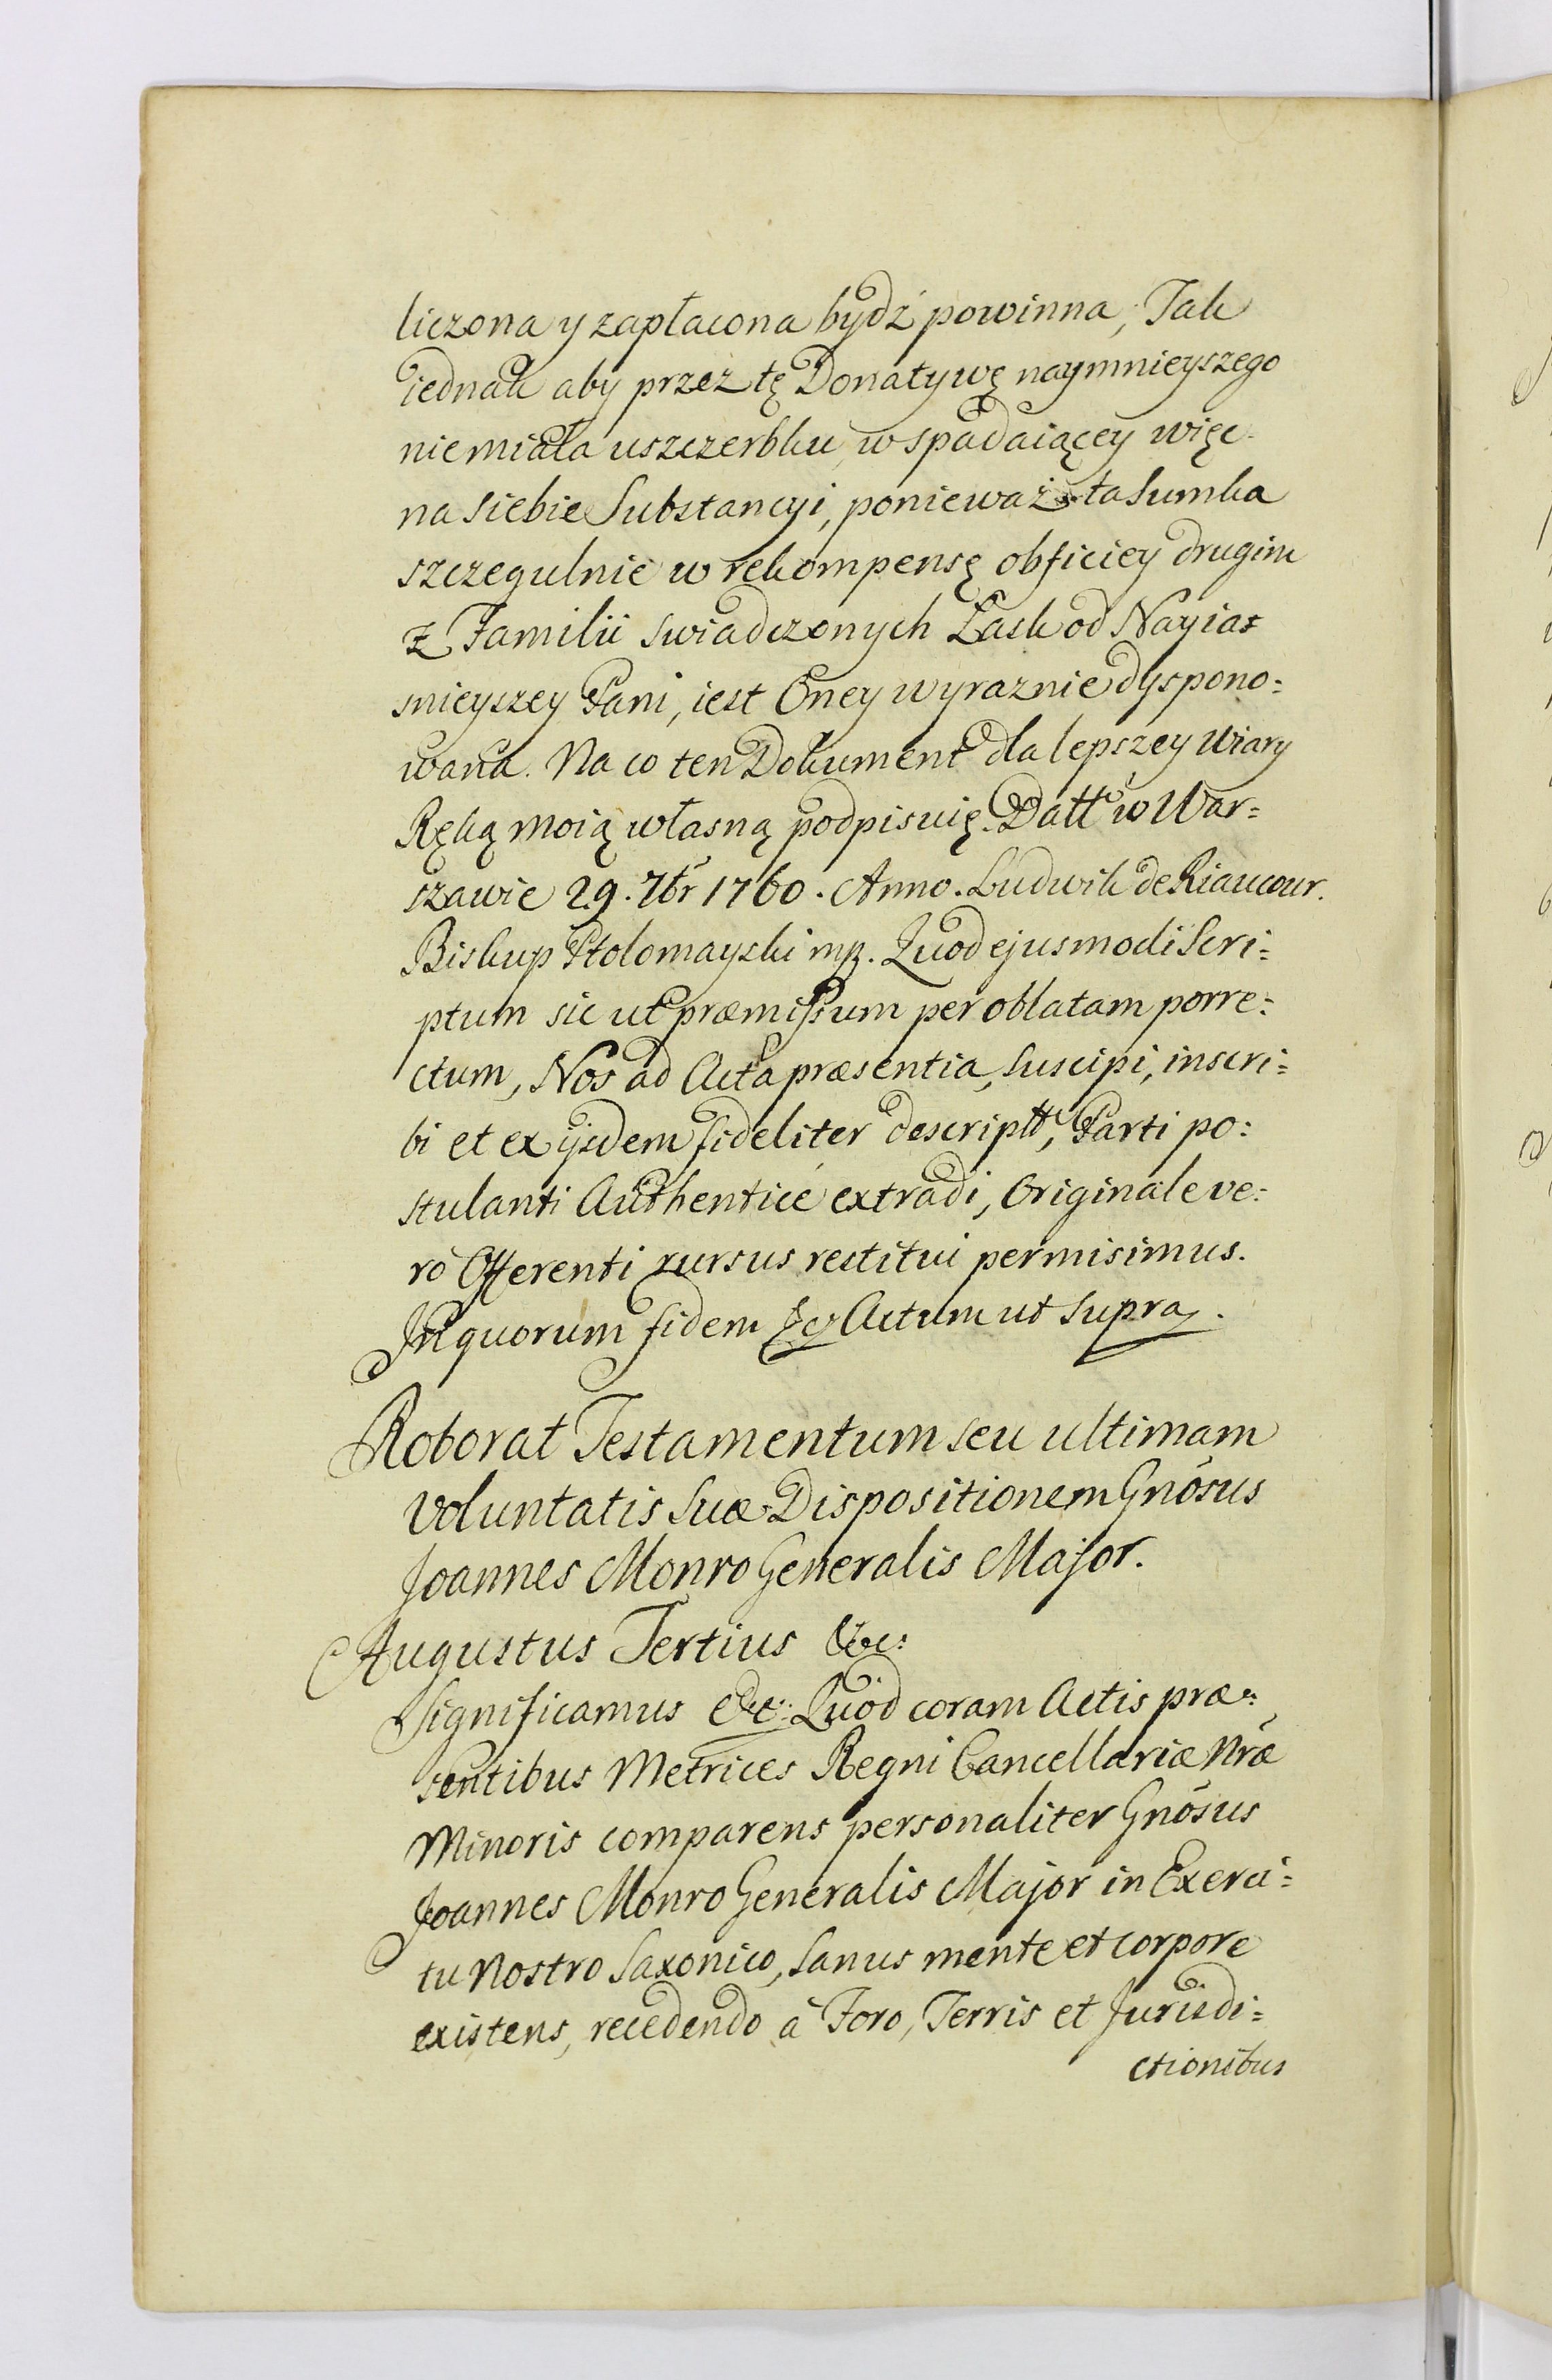 liczona y zapłacona bydź powinna, Tak
iednak aby przez tę Donatywę naymnieyszego
niemiała uszczerbku, w spadaiącey więc
na siebie Substancyi, ponieważ ta Sumka
szczegulnie w rekompensę obficiey drugim
z Familii swiadczonych Łask od Nayias=
nieyszey Pani, iest Oney wyraznie dyspono=
wana. Na co ten Dokument dla lepszey Wiary
Ręką moią własną podpisuię. Datt w War=
szawie 29. 7br 1760. Anno. Ludwik de Riaucour.
Biskup Ptolomayski mp. Quod ejusmodi Scri=
ptum sic ut præmissum per oblatam porre=
ctum, Nos ad Acta præsentia, suscipi, inscri=
bi et ex ijsdem fideliter descriptt, Parti po=
stulanti Authenticè extradi, Originale ve=
rò Offerenti rursus restitui permisimus.
In quorum fidem &c Actum ut supra.
Roborat Testamentum seu ultimam
Voluntatis Suæ Dispositionem Gnósus
Joannes Monro Generalis Major.
Augustus Tertius &c:
Significamus &c: Quod coram Actis præ=
sentibus Metrices Regni Cancellariæ Nræ
Minoris comparens personaliter Gnósus
Joannes Monro Generalis Major in Exerci=
tu Nostro Saxonico, Sanus mente et corpore
existens, recedendo à Foro, Terris et Jurisdi=
ctionibus